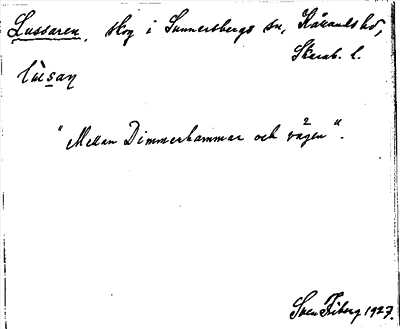 Lussaren, skog i Sunnersbergs sn, Kållands hd,
Skarab. l.
lùsan
"Mellan Dimmerhammar och vägen".
Sven Fiberg 1927.